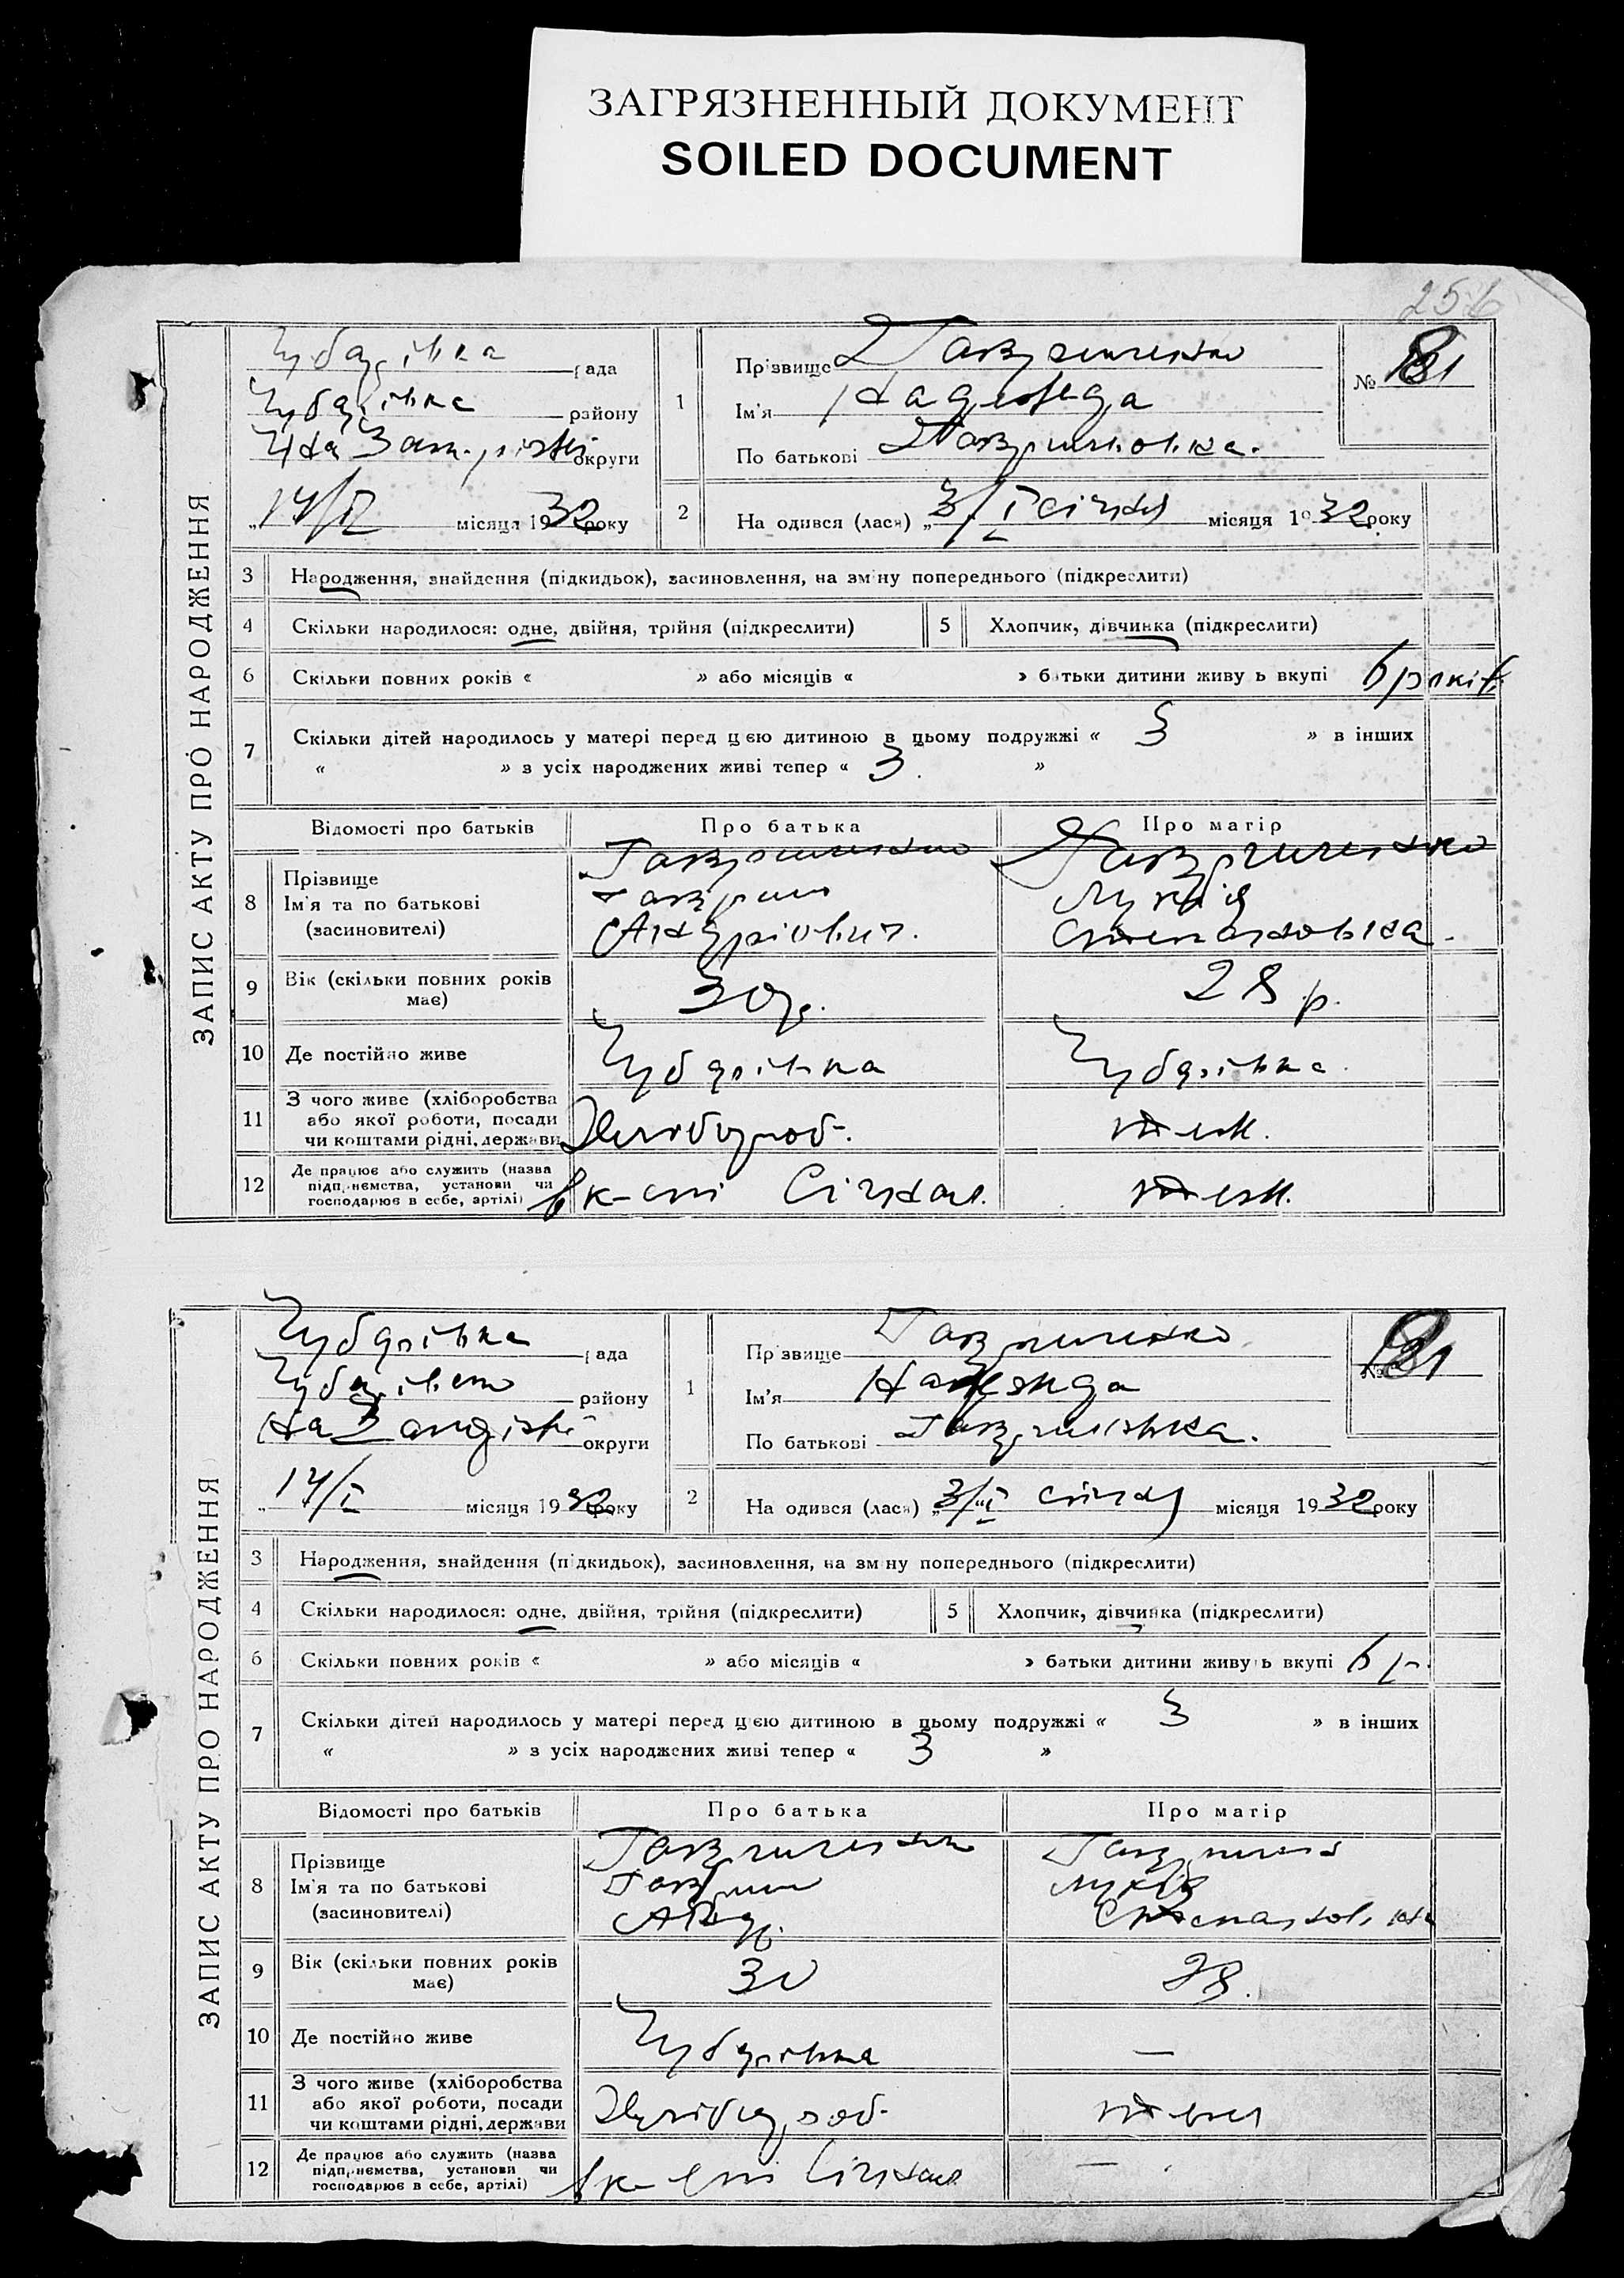 ЗАГРЯЗНЕННЫЙ ДОКУМЕНТ
SOILED DOCUMENT
256
ЗАПИС АКТУ ПРО НАРОДЖЕННЯ
Чубарівка рада
Чубарівка району
округи
14/I місяця 1932 року
1
Прізвище Гавриленко
Ім'я Надежда
По батькові Гавриловка.
№ 81
2
На одився (лася) „3/I січня місяця 1932 року
3 Народження, знайдення (підкидьок), засиновлення, на зміну попереднього (підкреслити)
4 Скільки народилося: одне, двійня, трійня (підкреслити)
5 Хлопчик, дівчинка (підкреслити)
6 Скільки повних років « » або місяців « » батьки дитини живуть вкупі 6 років
7 Скільки дітей народилось у матері перед цією дитиною в цьому подружжі « 3 » в інших
« » з усіх народжених живі тепер « 3 »
Відомості про батьків Про батька Про матір
8 Прізвище Гавриленко Гавриленко
Ім'я та по батькові Гаврило Лукія
(засиновителі) Андріович. Степановна.
9 Вік (скільки повних років має) 30 р. 28 р.
10 Де постійно живе Чубарівка Чубарівка.
11 З чого живе (хліборобства
або якої роботи, посади
чи коштами рідні, держави Хлібороб.
12 Де працює або служить (назва
підприємства, установи чи
господарює в себе, артілі) в к-спі
ЗАПИС АКТУ ПРО НАРОДЖЕННЯ
Чубарівка рада
району
округи
14/I місяця 1932 року
1
Прізвище Гавриленко
Ім'я Надежда
По батькові Гавриловка.
№ 81
2
На одився (лася) „3/I січня місяця 1932 року
3 Народження, знайдення (підкидьок), засиновлення, на зміну попереднього (підкреслити)
4 Скільки народилося: одне, двійня, трійня (підкреслити)
5 Хлопчик, дівчинка (підкреслити)
6 Скільки повних років « » або місяців « » батьки дитини живуть вкупі 6 р.
7 Скільки дітей народилось у матері перед цією дитиною в цьому подружжі « 3 » в інших
« » з усіх народжених живі тепер « 3 »
Відомості про батьків Про батька Про матір
8 Прізвище Гавриленко
Ім'я та по батькові Гаврило Лукія
(засиновителі) Андр. Степановна
9 Вік (скільки повних років має) 30 28.
10 Де постійно живе Чубарівка —
11 З чого живе (хліборобства
або якої роботи, посади
чи коштами рідні, держави Хлібороб-
12 Де працює або служить (назва
підприємства, установи чи
господарює в себе, артілі) в к-спі —